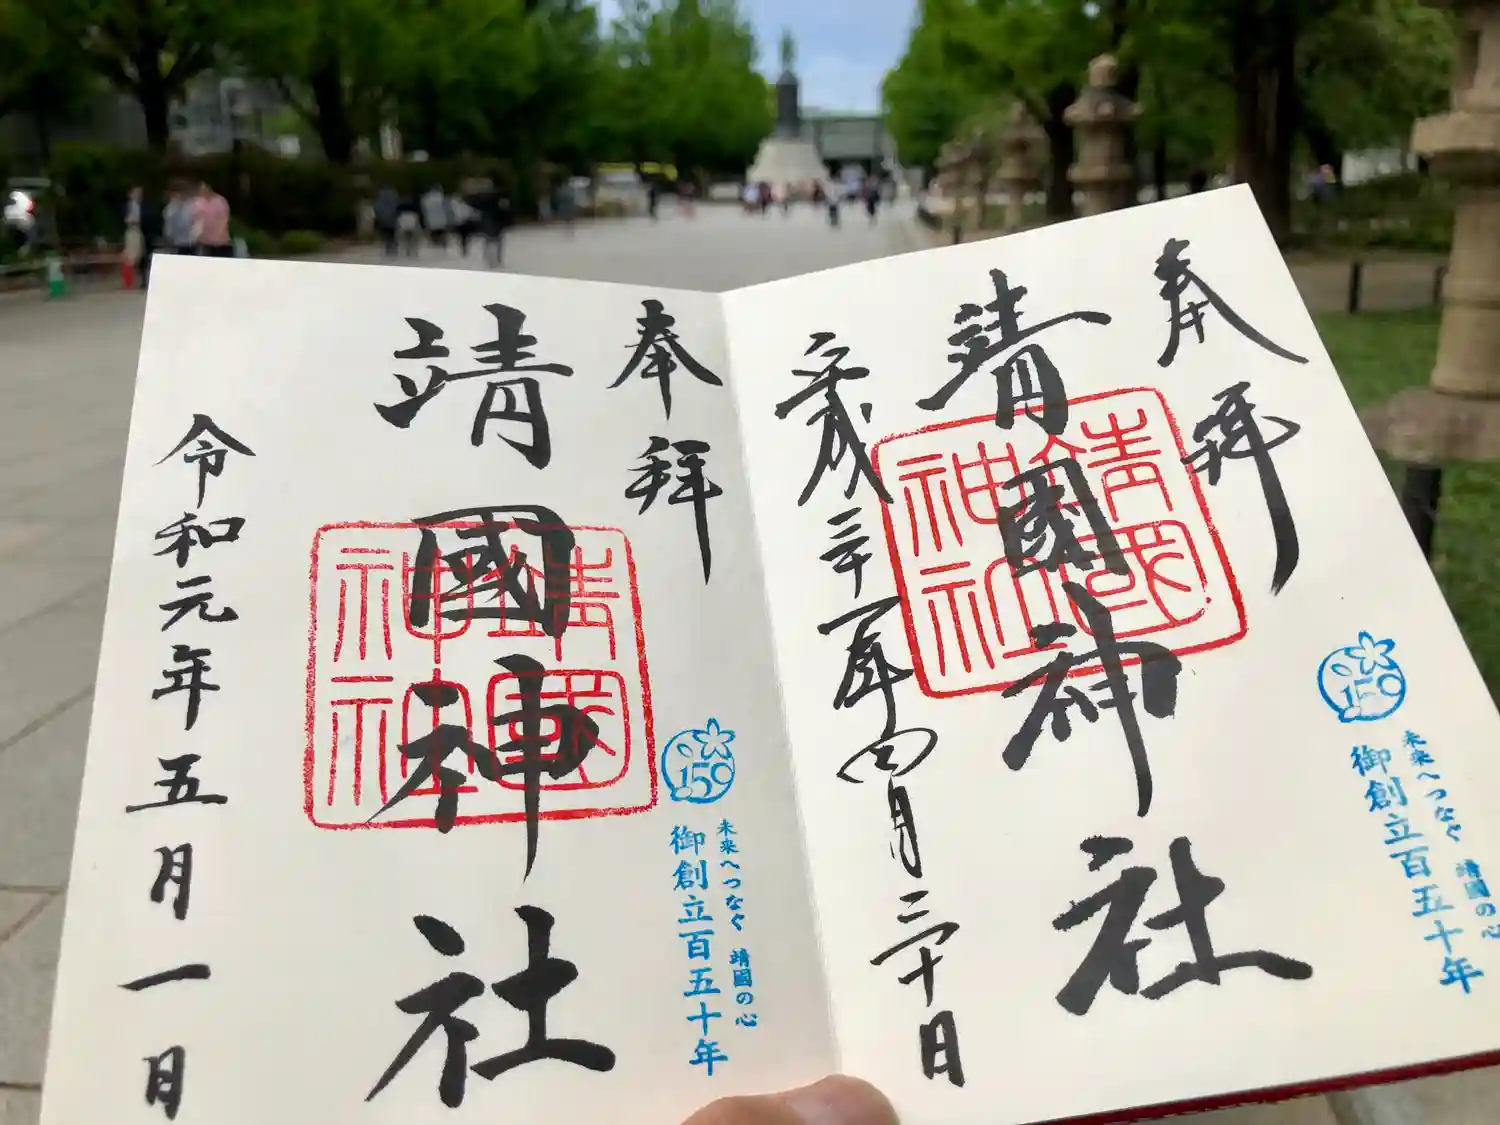 奉拝
靖國神社
靖國神社
平成三十一年四月三十日
150
未来へつなぐ 靖國の心
御創立百五十年
奉拝
靖國神社
靖國神社
令和元年五月一日
150
未来へつなぐ 靖國の心
御創立百五十年